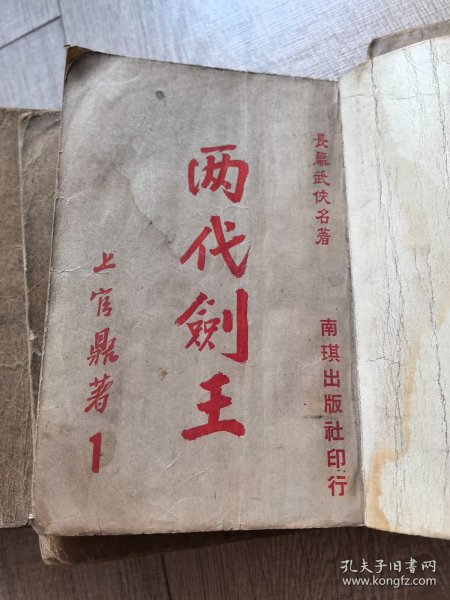 長篇武俠名著
两代劍王
上官鼎著
1
南琪出版社印行
孔夫子旧书网
www.kongfz.com